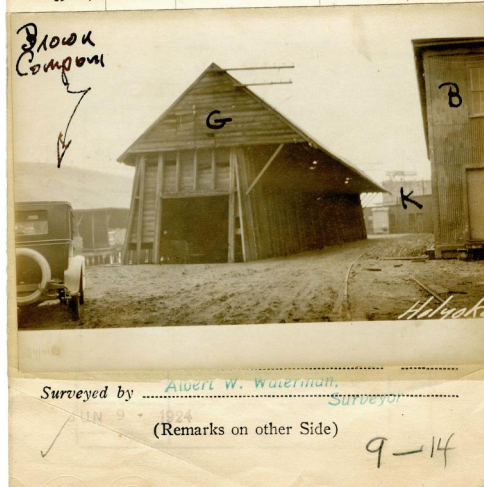 Brown
Company
G
B
K
Holyoke
Surveyed by Albert W. Waterman,
Surveyor
JUN 9 - 1924
(Remarks on other Side)
9-14